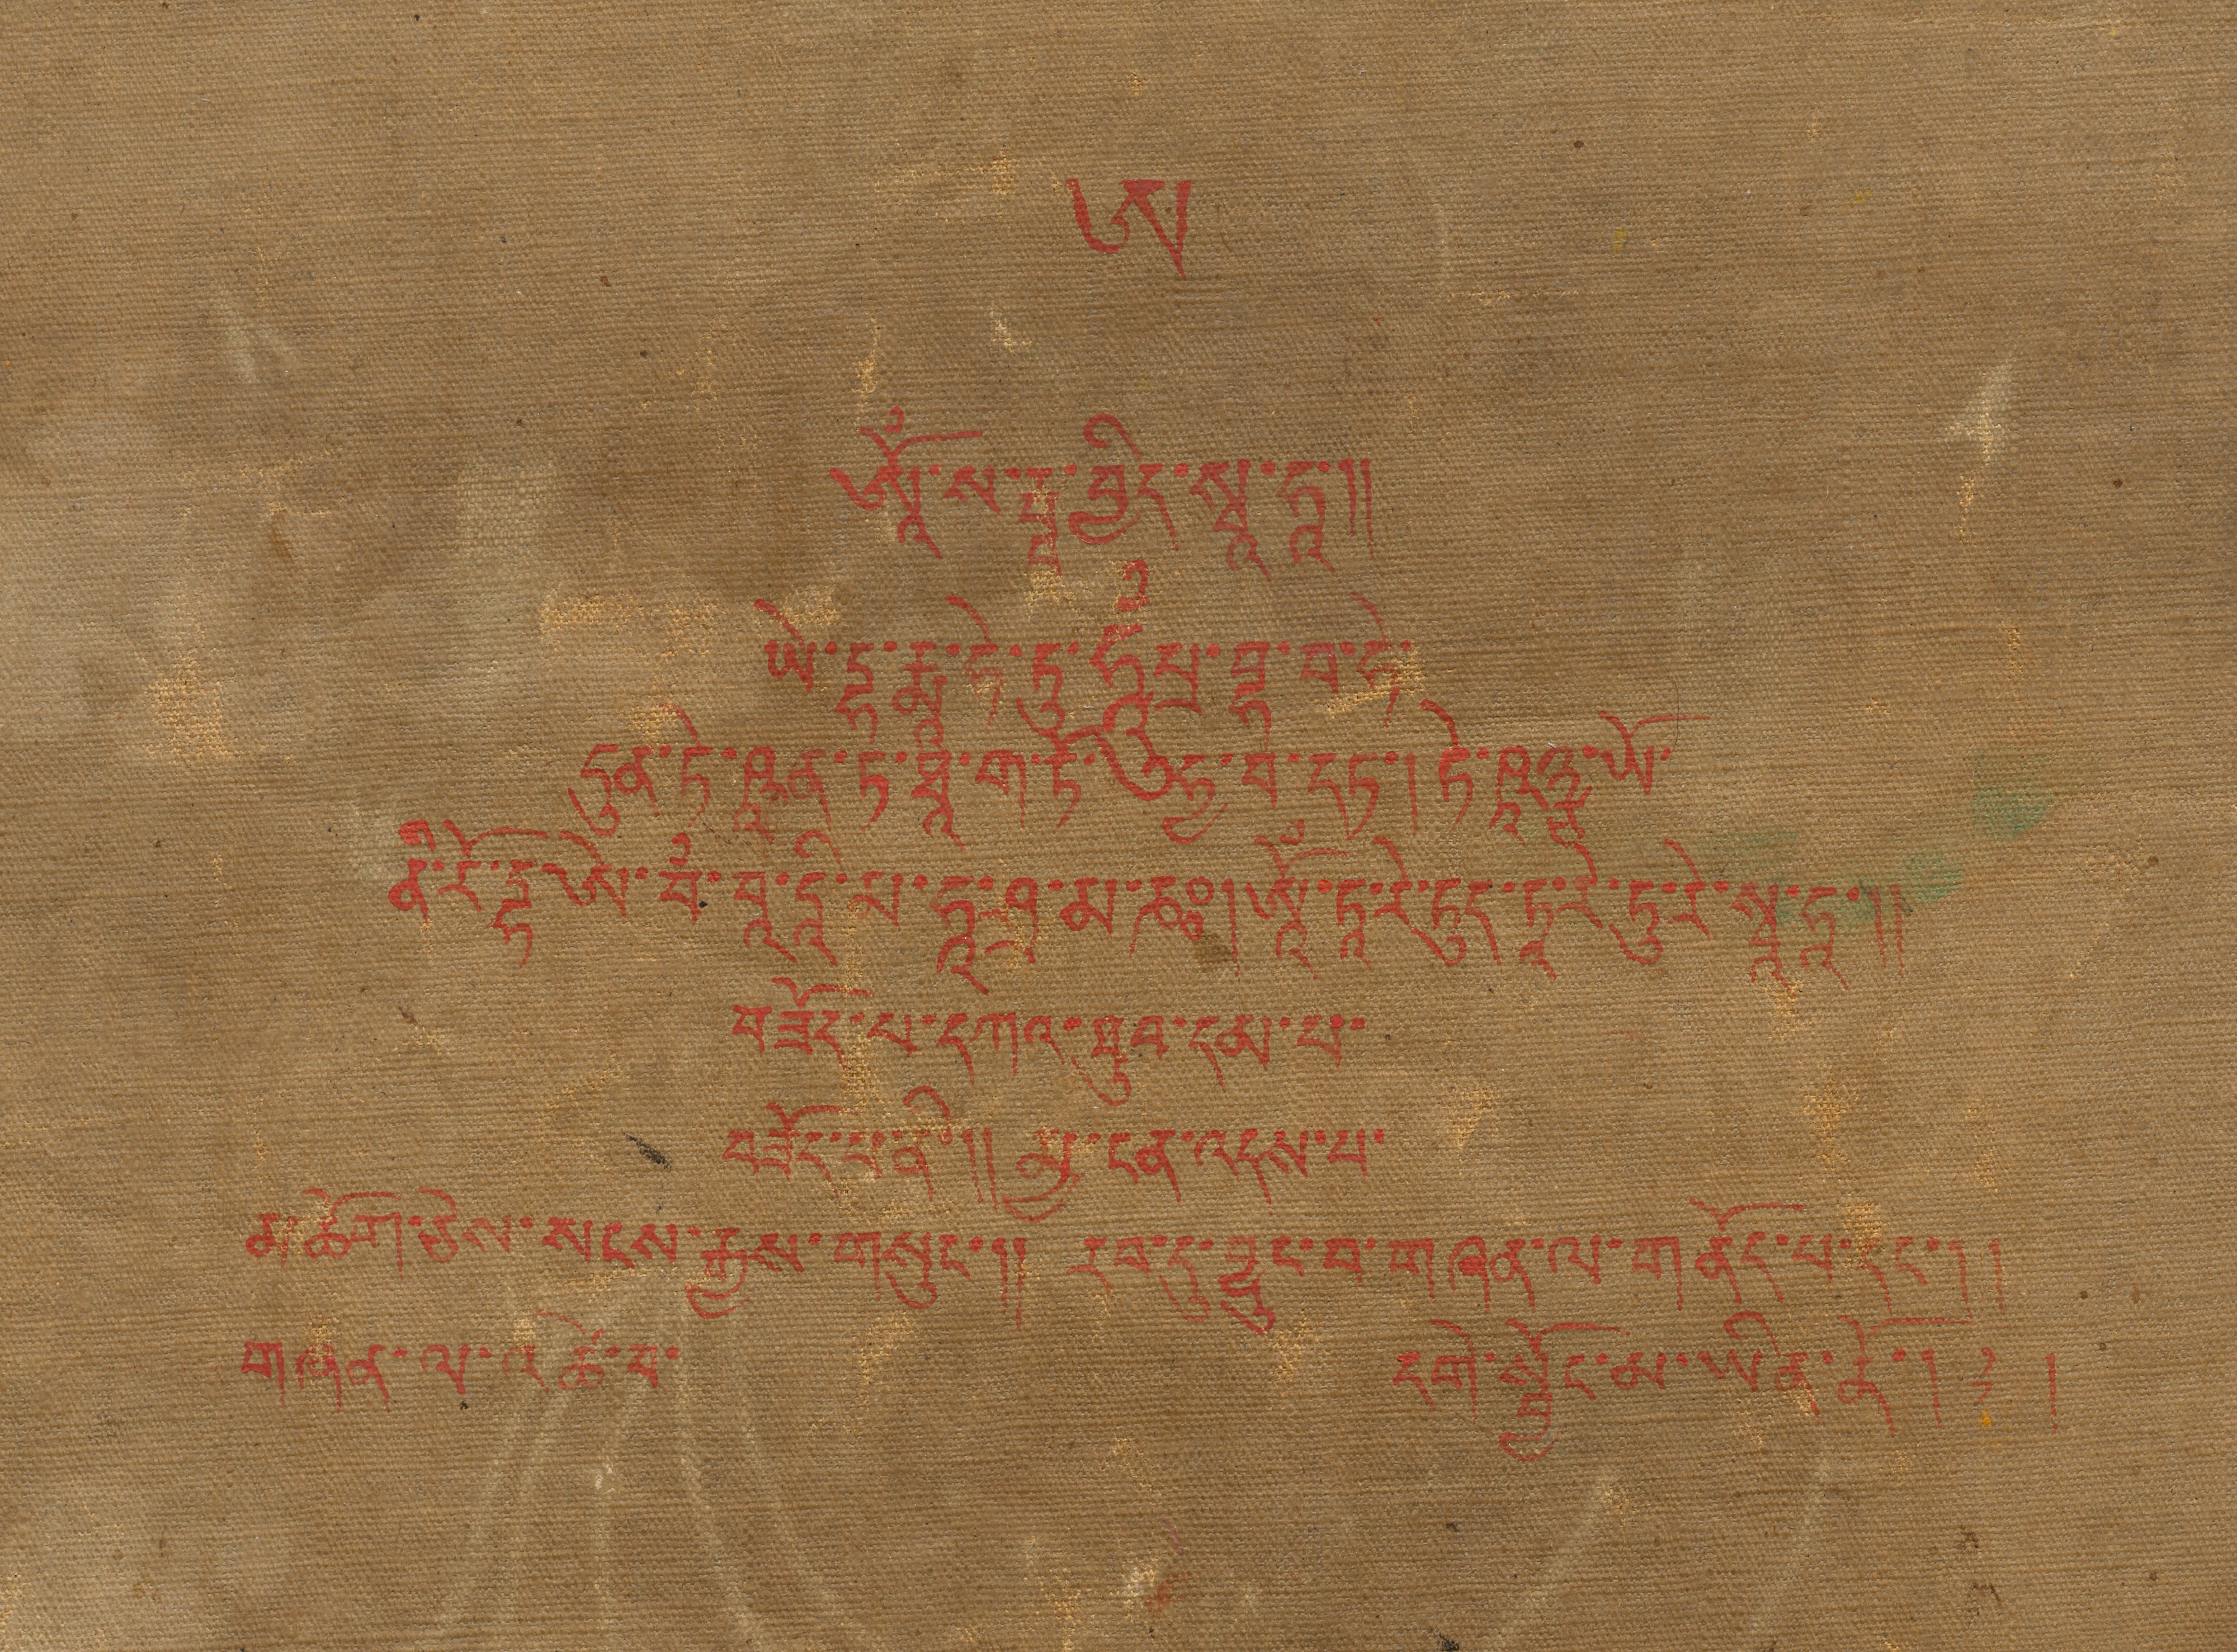 ཨ
ཨོཾ་ས་རྦ་བྱིད་སྭཱ་ཧཱ།།
ཡེ་དྷ་རྨཱ་ཧེ་ཏུ་པྲ་བྷ་བ་ཧེ
ཧཱུྃ
ཏུན་ཏེ་ཥཱན་ཏ་ཐཱ་ག་ཏོ་ཧྱ་བ་དཏ། ཏེ་ཥཱཉྩ་ཡོ་
ནི་རོ་དྷ་ཨེ་བཾ་བཱ་དཱི་མ་ཧཱ་ཤྲ་མ་ཎཿ། ཨོཾ་ཏཱ་རེ་ཏུཏ་ཏཱ་རེ་ཏུ་རེ་སྭཱ་ཧཱ།།
བཟོད་པ་དཀའ་ཐུབ་དམ་པ་
བཟོད་པ་ནི།། མྱ་ངན་འདས་པ་
མཆོག་ཅེས་སངས་རྒྱས་གསུང་།། རབ་ཏུ་བྱུང་བ་གཞན་ལ་གནོད་པ་དང་།།
གཞན་ལ་འཚེ་བ་ དགེ་སྦྱོང་མ་ཡིན་ནོ། །